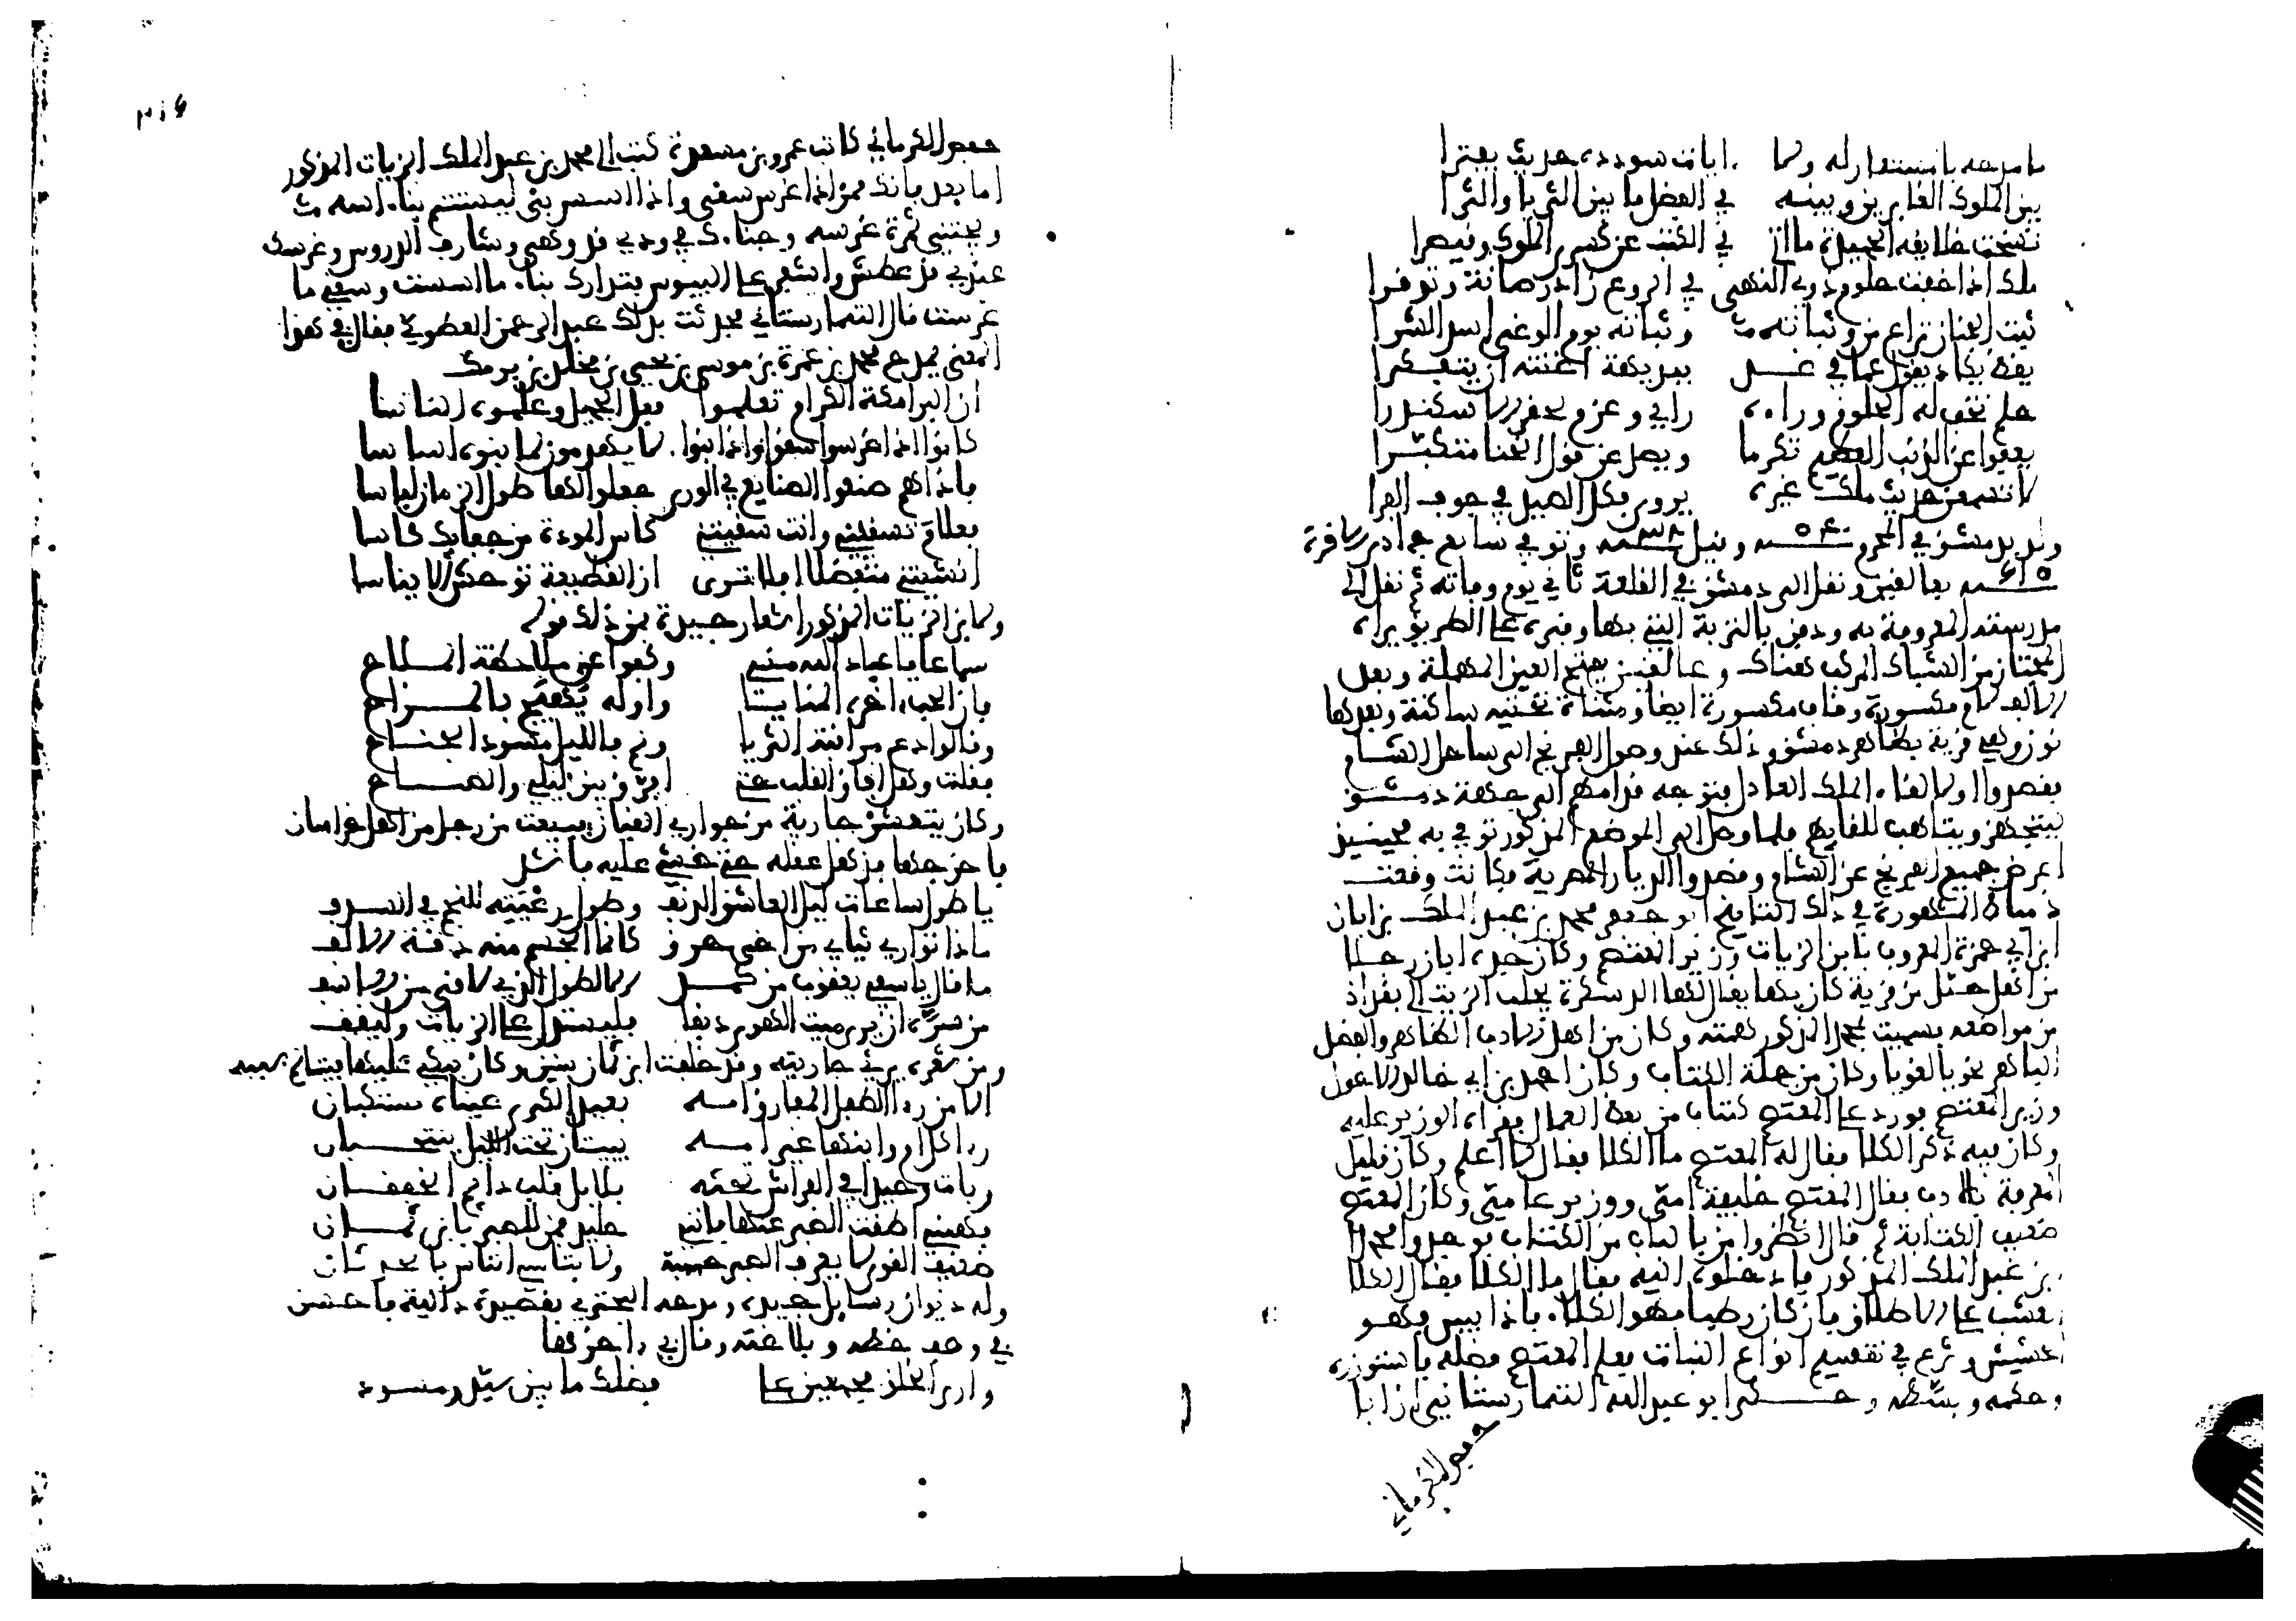 ما مدحه بالمستعار له ولا ايات سودده حديث يفترا
بين الملوك الغابرين وبينه في الفضل ما بين الثريا والثرا
نسخت خلايقه الحميدة ما اتى في الكتب عن كسرى الملوك وقيصرا
ملك اذا خفت حلوم ذوي النهى في الروع زاد رصانة وتوقرا
ثبت الجنان تراع من وثباته وثباته يوم الوغى اسد الشرا
يقظ يكاد يقول عما في غد ببديهة اغنته ان يتفكرا
حلم تخف له الحلوم وراءه راي وعزم يحقر الاسكندرا
يعفوا عن الذنب العظيم تكرما ويصد عن قول الخنا متكبرا
لا تسمعن حديث ملك غيره يروى فكل الصيد في جوف الفرا
ولد بدمشق في المحرم سنة ٥٤٠ وقيل ٥٣٨ وتوفي سابع جمادى الاخرة
سنة ٦١٥ بعالقين ونقل الى دمشق في القلعة ثاني يوم وفاته ثم نقل الى
مدرسته المعروفة به ودفن بالتربة التي بها وقبره على الطريق يراه
المجتاز من الشباك المركب هناك وعالقين بفتح العين المهملة وبعد
الالف لام مكسورة وقاف مكسورة ايضا ومثناة تحتية ساكنة وبعدها
نون وهي قرية بظاهر دمشق وذلك عند وصول الفرنج الى ساحل الشام
فقصدوا اولا لقاء الملك العادل فتوجه قدامهم الى جهة دمشق
ليتجهز ويتاهب للقايهم فلما وصل الى الموضع المذكور توفي به فحينيذ
اعرض جميع الفرنج عن الشام وقصدوا الديار المصرية فكانت وقعت
دمياط المشهورة في ذلك التاريخ ابو جعفر محمد بن عبد الملك بن ابان
ابن ابي حمزة المعروف بابن الزيات وزير المعتصم وكان جده ابان رجلا
من اهل جبل من قرية كان بها يقال لها الدسكرة يجلب الزيت الى بغداد
من مواضعه فسمت بمحمد المذكور همته وكان من اهل الادب الظاهر والفضل
الباهر نحويا لغويا وكان من جملة الكتاب وكان احمد بن ابي خالد الاحول
وزير المعتصم فورد على المعتصم كتاب من بعض العمال فقراه الوزير عليه
وكان فيه ذكر الكلا فقال له المعتصم ما الكلا فقال لا اعلم وكان قليل
المعرفة بالادب فقال المعتصم خليفة امي ووزير عامي وكان المعتصم
ضعيف الكتابة ثم قال انظروا من بالباب من الكتاب فوجدوا محمد
بن عبد الملك المذكور فادخلوه اليه فقال ما الكلا فقال الكلا
العشب على الاطلاق فان كان رطبا فهو الخلاء فاذا يبس فهو
الحشيش وشرع في تقسيم انواع النبات فعلم المعتصم فضله فاستوزره
وحكمه وبسط وحكى ابو عبد الله البيمارستاني ان ابا
حفص الكرماني
٣١٤
حفص الكرماني كاتب عمرو بن مسعدة كتب الى محمد بن عبد الملك الزيات المذكور
اما بعد فانك ممن اذا غرس سقى واذا اسس بنى ليستتم بناء اسه
ويجتني ثمرة غرسه وبناءك في ودي قد وهى وشارف الدروس وغرسك
عندي قد عطش واشفى على اليبوس فتدارك بناء ما اسست وسقي ما
غرست قال البيمارستاني فحدثت بذلك عبد الرحمن العطوي فقال في هذا
المعنى يمدح محمد بن عمرة بن موسى بن يحيى بن خالد بن برمك
ان البرامكة الكرام تعلموا فعل الجميل وعلموه الناسا
كانوا اذا غرسوا سقوا واذا بنوا لا يهدمون لما بنوه اساسا
فاذا هم صنعوا الصنايع في الورى جعلوا لها طول الزمان لباسا
فعلام تسقيني وانت سقيتني كاس المودة من جفايك كاسا
انستني متفضلا افلا ترى ان القطيعة توحش الايناسا
ولابن الزيات المذكور اشعار جيدة فمن ذلك قوله
سماعا يا عباد الله مني وكفوا عن ملاحظة الملاح
فان الحب اخره المنايا واوله يهيج بالمزاح
وقالوا دع مراقبة الثريا ونم فالليل مسود الجناح
فقلت وهل افاق القلب حتى افرق بين ليلي والصباح
وكان يتعشق جارية من جواري القيان فبيعت من رجل من اهل خراسان
فاخرجها فذهل عقله حتى خشي عليه فانشد
يا طول ساعات ليل العاشق الدنف وطول رعيته للنجم في السدف
ماذا تواري ثيابي من اخي حرق كانما الجسم منه دقة الالف
ما قال يا اسفي يعقوب من كمد الا لطول الذي لاقى من الاسف
من سره ان يرى ميت الهوى دنفا فليستدل على الزيات وليقف
ومن شعره يرثي جاريته وقد خلفت ابن ثمان سنين وكان يبكي عليها فيتالم بسببه
الا من راى الطفل المفارق امه بعيد الكرى عيناه تنسكبان
راى كل ام وابنها غير امه يبيتان تحت الليل ينتحبان
وبات وحيدا في الفراش تحثه بلابل قلب دائم الخفقان
فهبني اطقت الصبر عنها فانني جليد فمن للصبر بابن ثمان
ضعيف القوى لا يعرف الصبر حسبة ولا يتاسى بالناس في الحدثان
وله ديوان رسايل جيدة ومدحه البحتري بقصيدة دالية فاحسن
في وصف خطه وبلاغته وقال في اخرها
وارى الخلق مجمعين على فضلك ما بين سيد ومسود